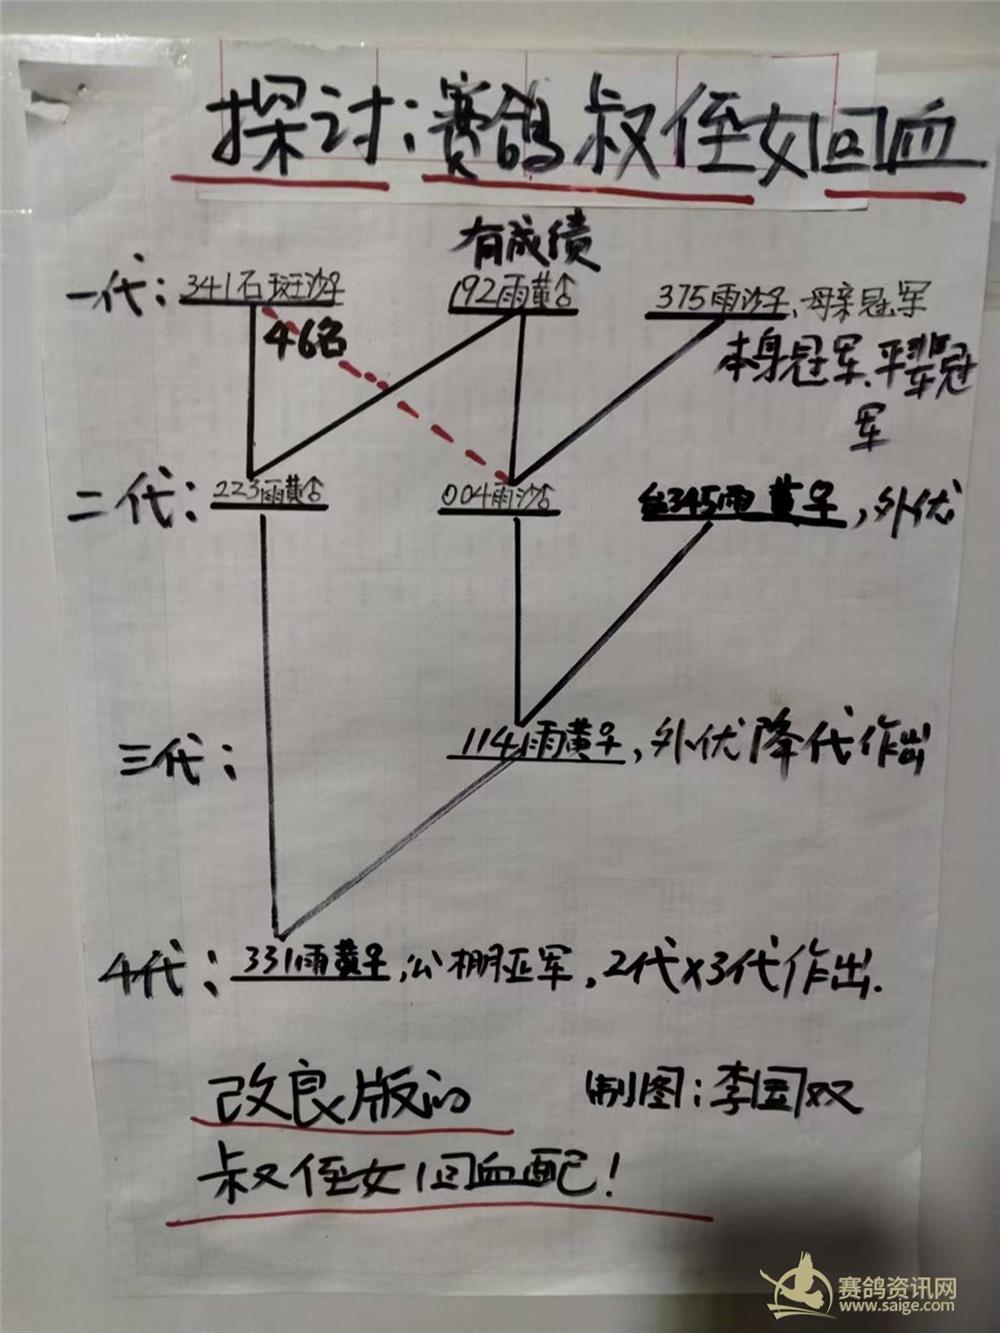 探讨:赛鸽叔侄女回血
有成绩
一代: 341石斑沙子 192雨黄合 375雨沙子、母亲冠军
46名
本身冠军、平辈冠
军
二代: 223雨黄合 004雨沙合 345雨黄子,外优
三代: 1141雨黄子,外优降代作出
4代: 331雨黄子,公棚亚军,2代x3代作出.
改良版的 制图:李国双
叔侄女回血配!
赛鸽资讯网
www.saige.com